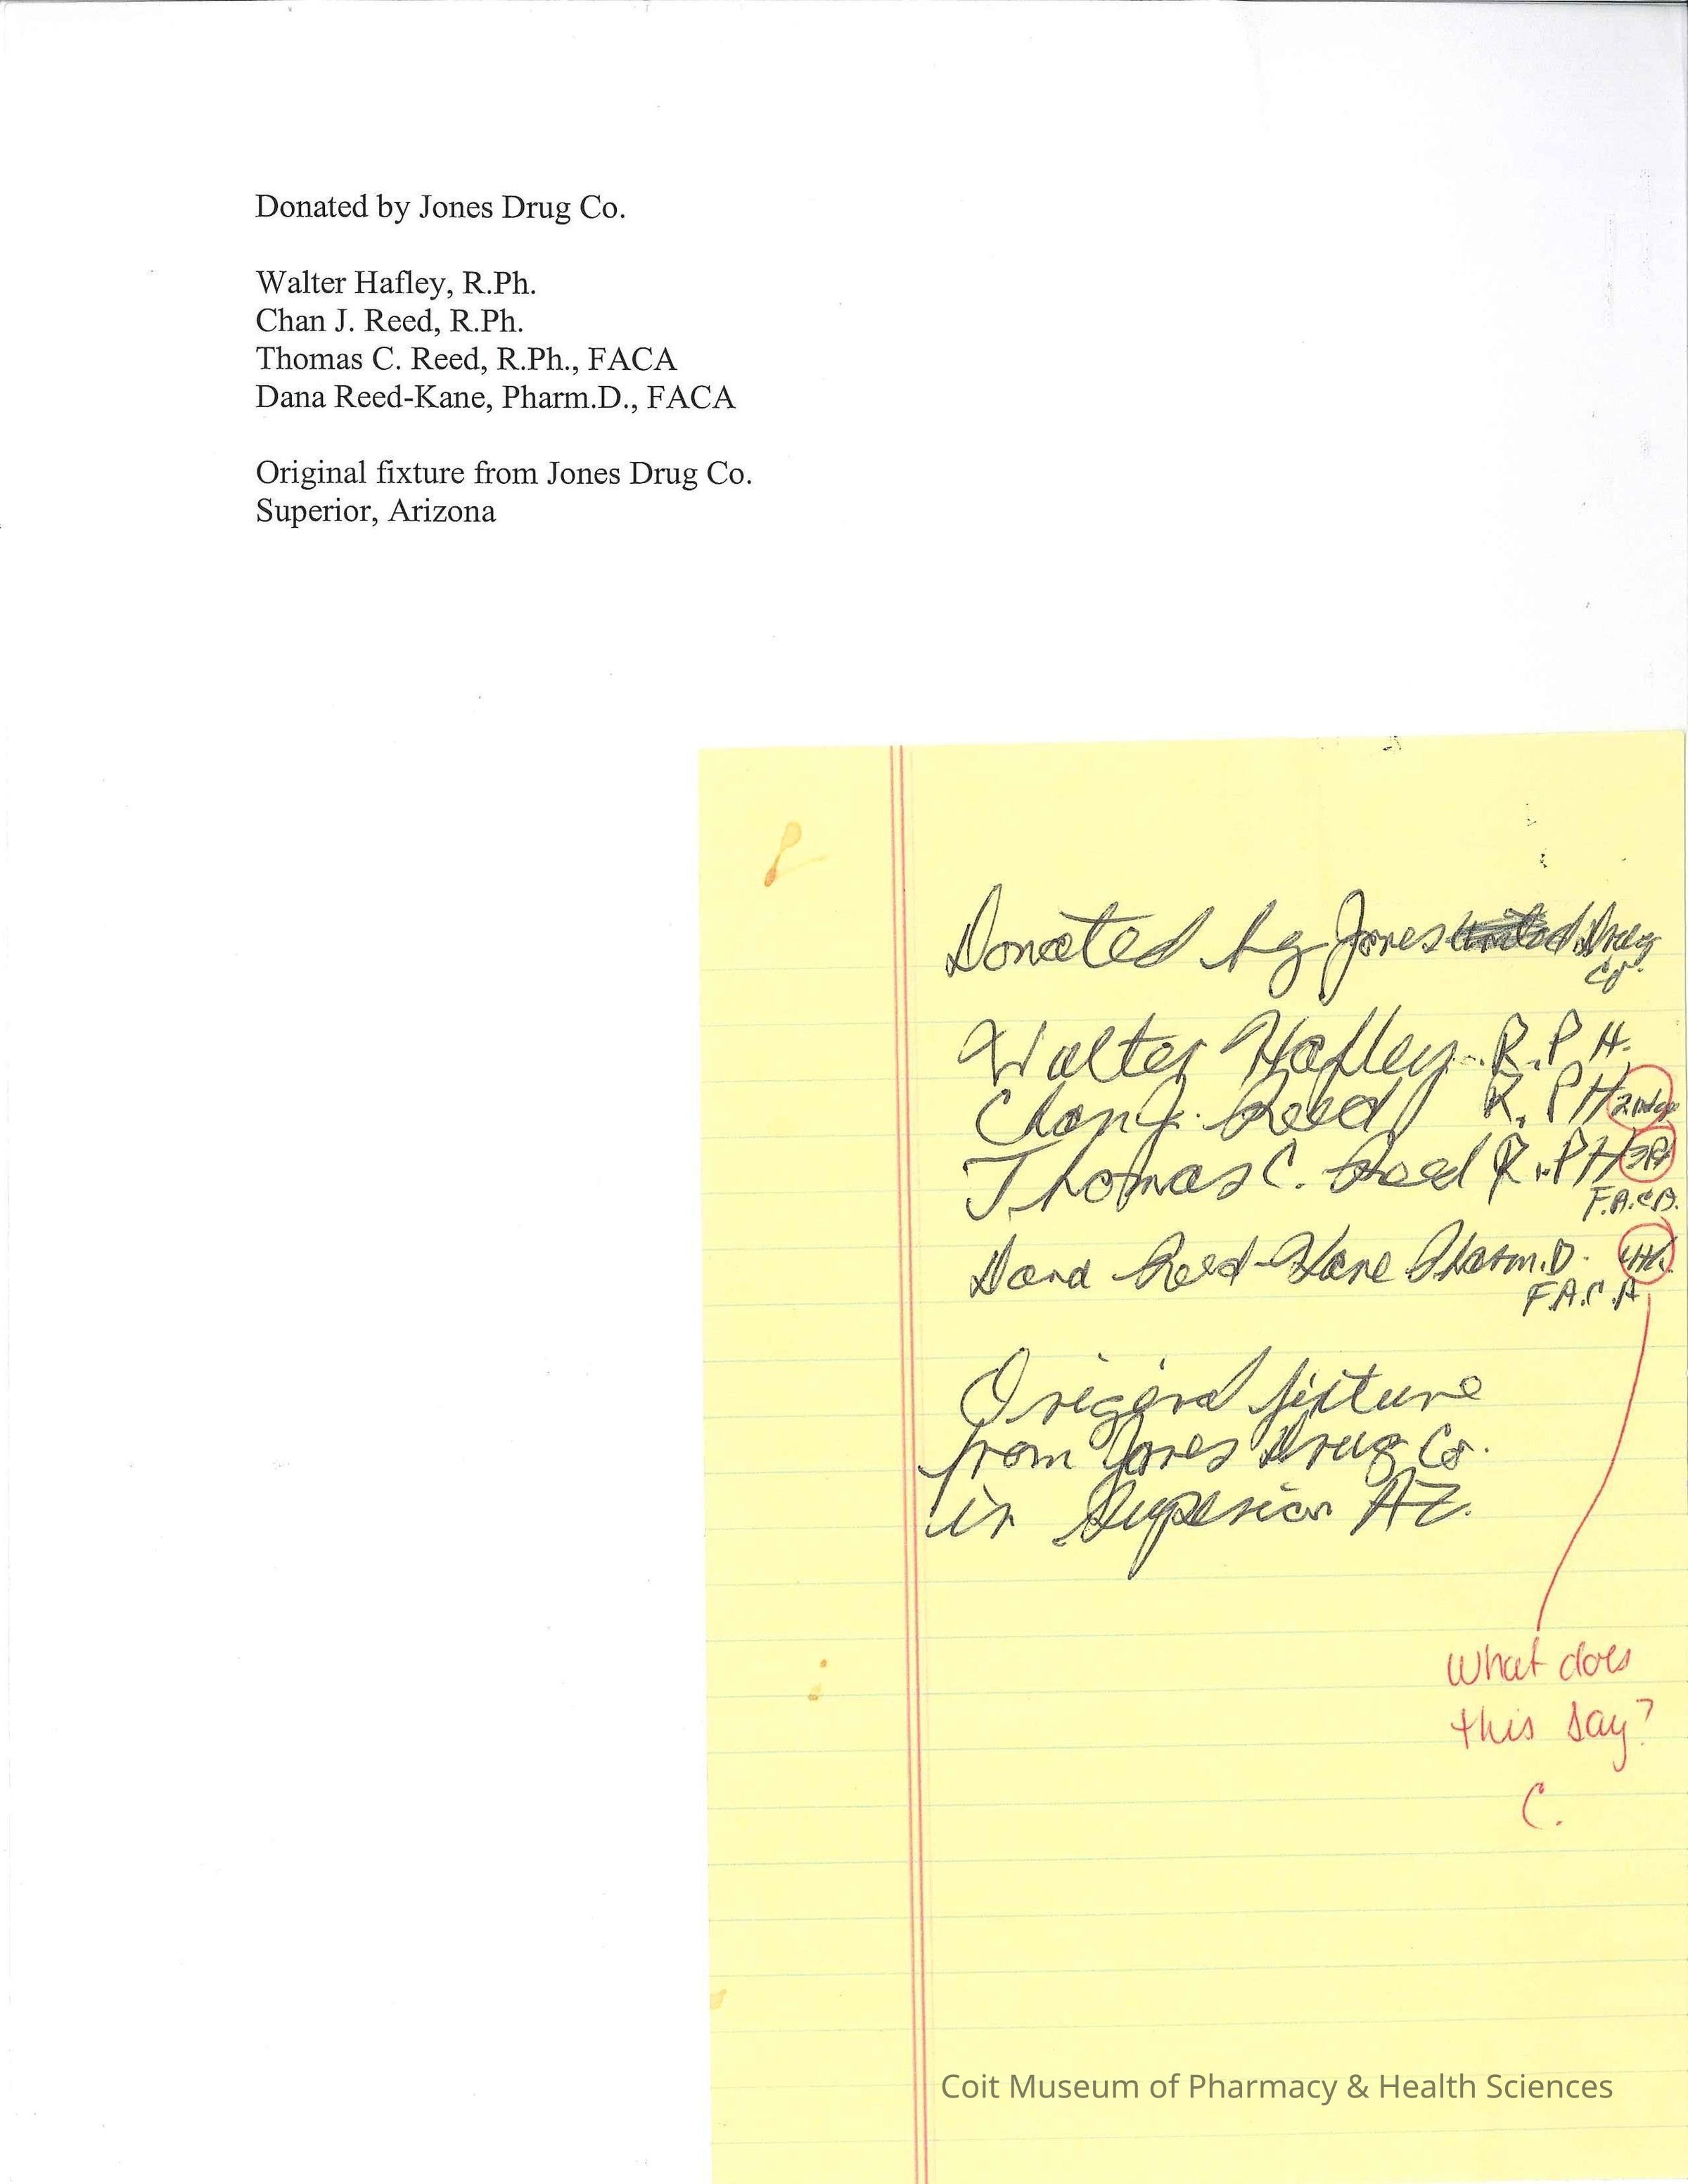 Donated by Jones Drug Co.
Walter Hafley, R.Ph.
Chan J. Reed, R.Ph.
Thomas C. Reed, R.Ph., FACA
Dana Reed-Kane, Pharm.D., FACA
Original fixture from Jones Drug Co.
Superior, Arizona
Donated by Jones Drug
Co.
Walter Hafley R.P.H.
Chan J. Reed R.PH
Thomas C. Reed R.PH 3rd
F.A.C.A.
Dana Reed-Kane Pharm.D. 4th.
F.A.C.A
Original fixture
from Jones Drug Co.
in Superior AZ.
What does
this say?
C.
Coit Museum of Pharmacy & Health Sciences